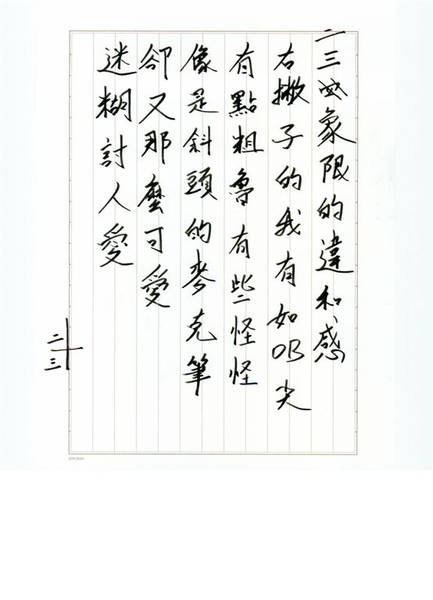 二三四象限的違和感
右撇子的我有如OB尖
有點粗魯有些怪怪
像是斜頭的麥克筆
卻又那麼可愛
迷糊討人愛
二
三